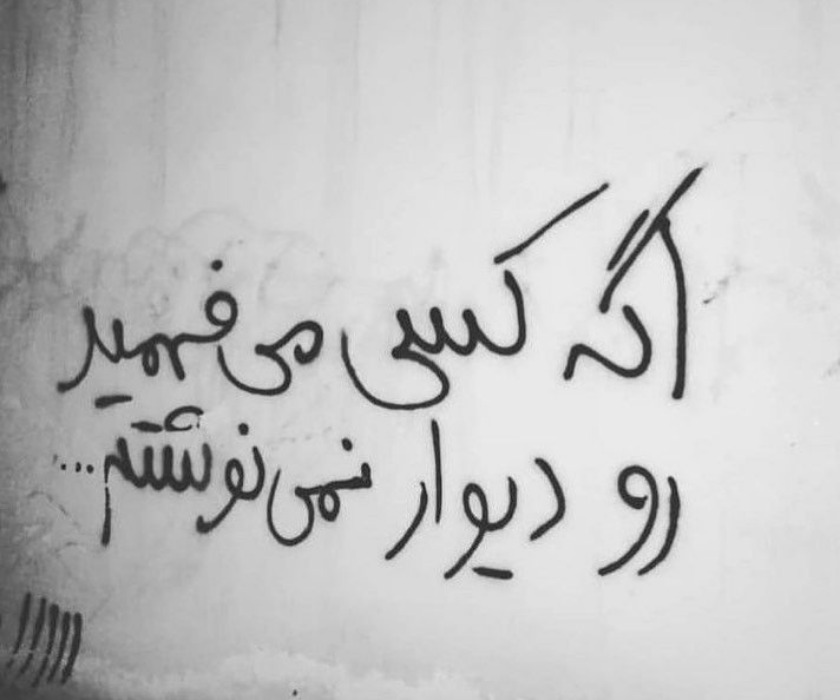 اگه کسی می فهمید
رو دیوار نمی نوشتم...